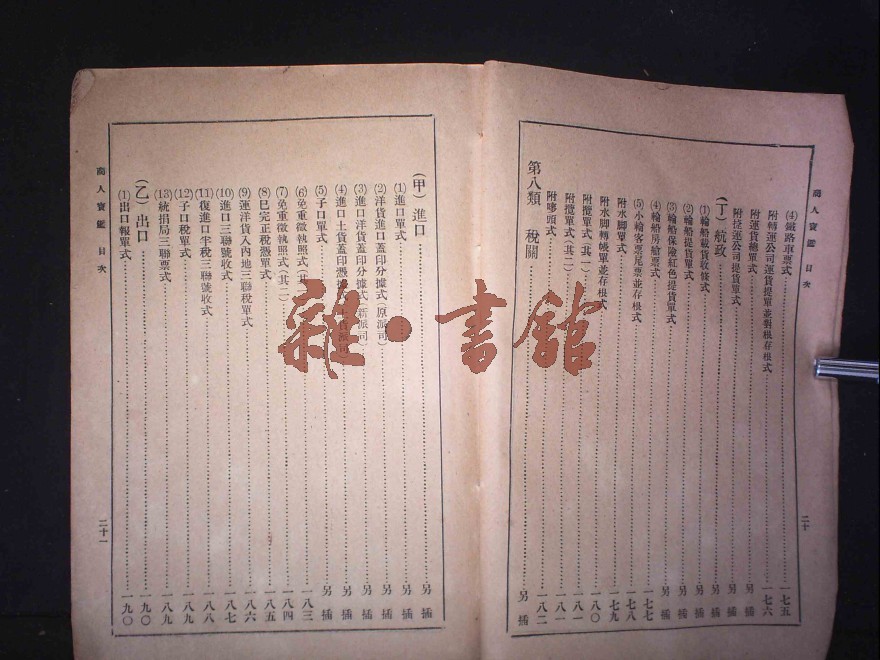 商人寶鑑 目次
二十
(4)鐵路取票式 一七五
附轉運公司運貨提單並對根存根式 一七六
附運貨總單式 另插
附捷運公司提貨單式 另插
(丁)航政 另插
(1)輪船載貨收條式 另插
(2)輪船提貨單式 另插
(3)輪船保險紅色提貨單式 另插
(4)輪船房艙票式 一七七
(5)小輪客票尾票並存根式 一七八
附水脚單式 一七九
附水脚轉帳單並存根式 一八〇
附攬單式(其一) 一八一
附攬單式(其二) 一八一
附嘜頭式 一八二
第八類 稅關 另插
(甲)進口 另插
(1)進口單式 另插
(2)洋貨進口蓋印分據式(原派司) 另插
(3)進口洋貨蓋印分據式(新派司) 另插
(4)進口土貨蓋印憑據式 另插
(5)子口單式 另插
(6)免重徵執照式 一八三
(7)免重徵執照式(其二) 一八四
(8)已完正稅憑單式 一八五
(9)運洋貨入內地三聯稅單式 一八六
(10)進口三聯號收式 一八七
(11)復進口半稅三聯號收式 一八八
(12)子口稅單式 一八九
(13)統捐局三聯票式 一八九
(乙)出口 一九〇
(1)出口報單式 一九〇
商人寶鑑 目次
二十一
雜·書館